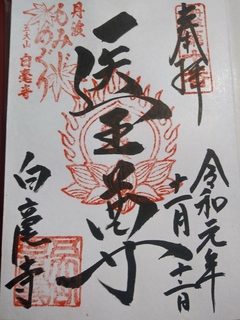 奉拝
令和元年
十一月十二日
医王尊
白毫寺
丹波
もみじ
めぐり
五大山
白毫寺